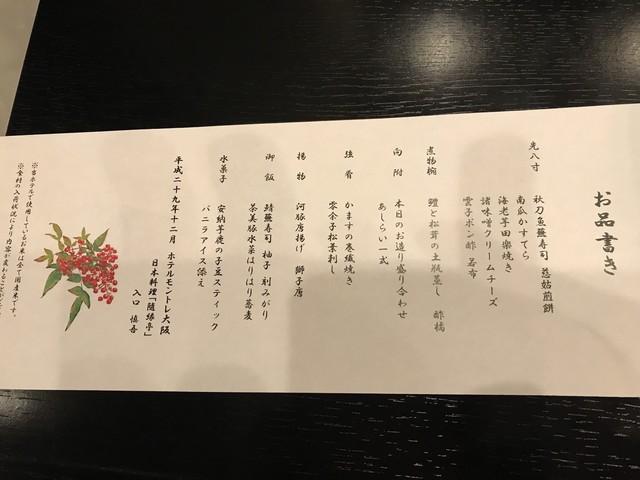 お品書き
先八寸
秋刀魚蕪寿司 慈姑煎餅
南瓜かすてら
海老芋田楽焼き
諸味噌クリームチーズ
雲子ポン酢 若布
煮物椀
鱧と松茸の土瓶蒸し 酢橘
向附
本日のお造り盛り合わせ
あしらい一式
強肴
かますの巻繊焼き
零余子松葉刺し
揚物
河豚唐揚げ 獅子唐
御飯
鯖蕪寿司 柚子 刻みがり
茶美豚水菜はりはり蕎麦
水菓子
安納芋鹿の子豆スティック
バニラアイス添え
平成二十九年十二月 ホテルモントレ大阪
日本料理「随縁亭」
入口 慎吾
※当ホテルで使用しているお米は全て国産米です。
※食材の入荷状況により内容が変わることが